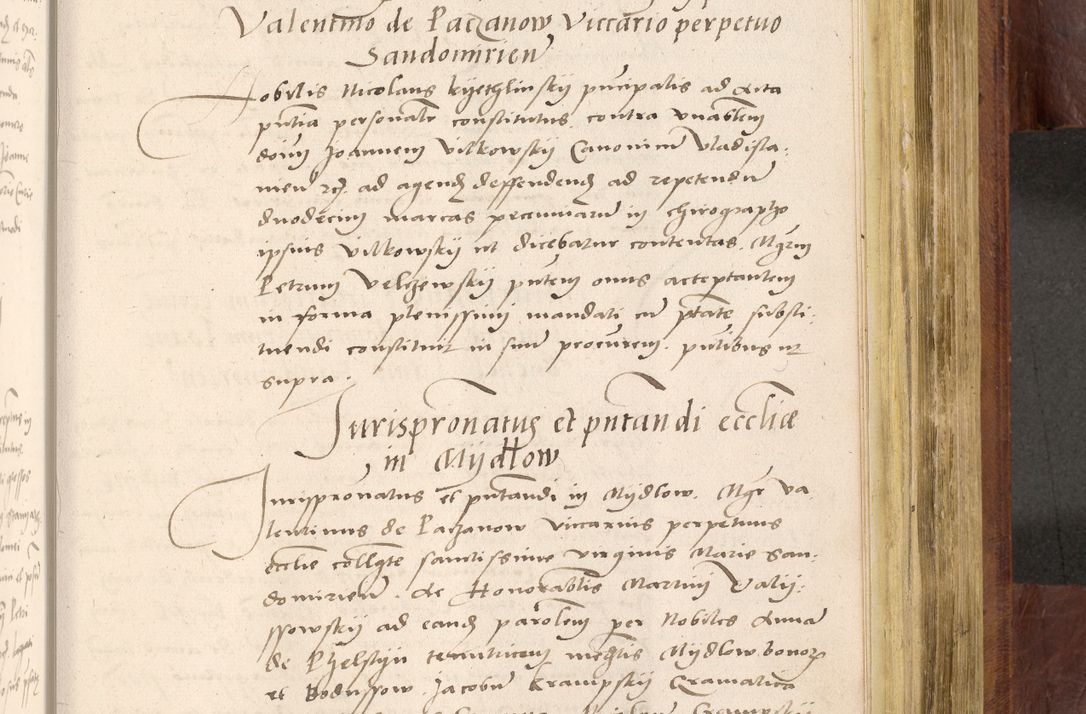 Valentino de Paczanow Viccario perpetuo
Sandomirien
Nobilis Nicolaus kyethlinskij principalis ad acta
pntia personalr constitutus contra vnablem
dominum Joannem Vilkowskij Canonicum Vladisla-
vien ad agend deffendend ad repetendum
duodecim marcas pecuniarum in chirographo
ipsius Vilkowskij ut dicebatur contentas. Mgrm
Petrum Velzewskij pntem onus acceptantem
in forma plenissimi mandati cum ptate substi-
tuendi constituit in suum procurem. pntibus ut
supra.
Jurispronatus et pntandi ecclie
in Mijdlow
Jurispronatus et pntandi in Mijdlow. Mgr Va-
lentinus de Paczanow viccarius perpetuus
ecclie collgte sanctissime virginis Marie San-
domirien. de Honorablis Martini Valij-
ssowskij ad eand parolem per Nobiles Anna
de Pzelstijn Mijdlow bonor
et Bodussow Jacobum Krampskij Gramatica